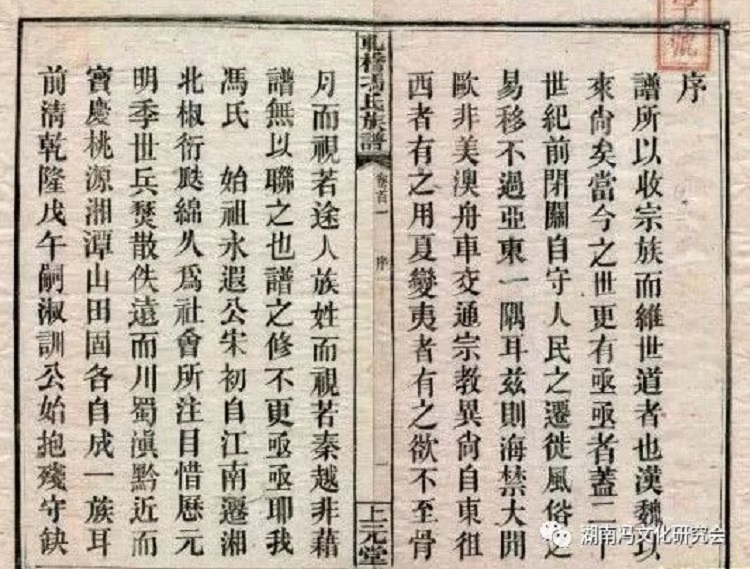 序
譜所以收宗族而維世道者也漢魏以
來尙矣當今之世更有亟亟者蓋二十
世紀前閉關自守人民之遷徙風俗之
易移不過亞東一隅耳兹則海禁大開
歐非美澳舟車交通宗教異尙自東徂
西者有之用夏變夷者有之欲不至骨
橋馮氏族譜 卷首一 序 一 上元堂
月而視若途人族姓而視若秦越非藉
譜無以聯之也譜之修不更亟亟耶我
馮氏 始祖永遐公宋初自江南遷湘
北椒衍瓞綿久爲社會所注目惜歷元
明季世兵燹散佚遠而川蜀滇黔近而
寶慶桃源湘潭山田固各自成一族耳
前清乾隆戊午嗣淑訓公始抱殘守缺
湖南冯文化研究会